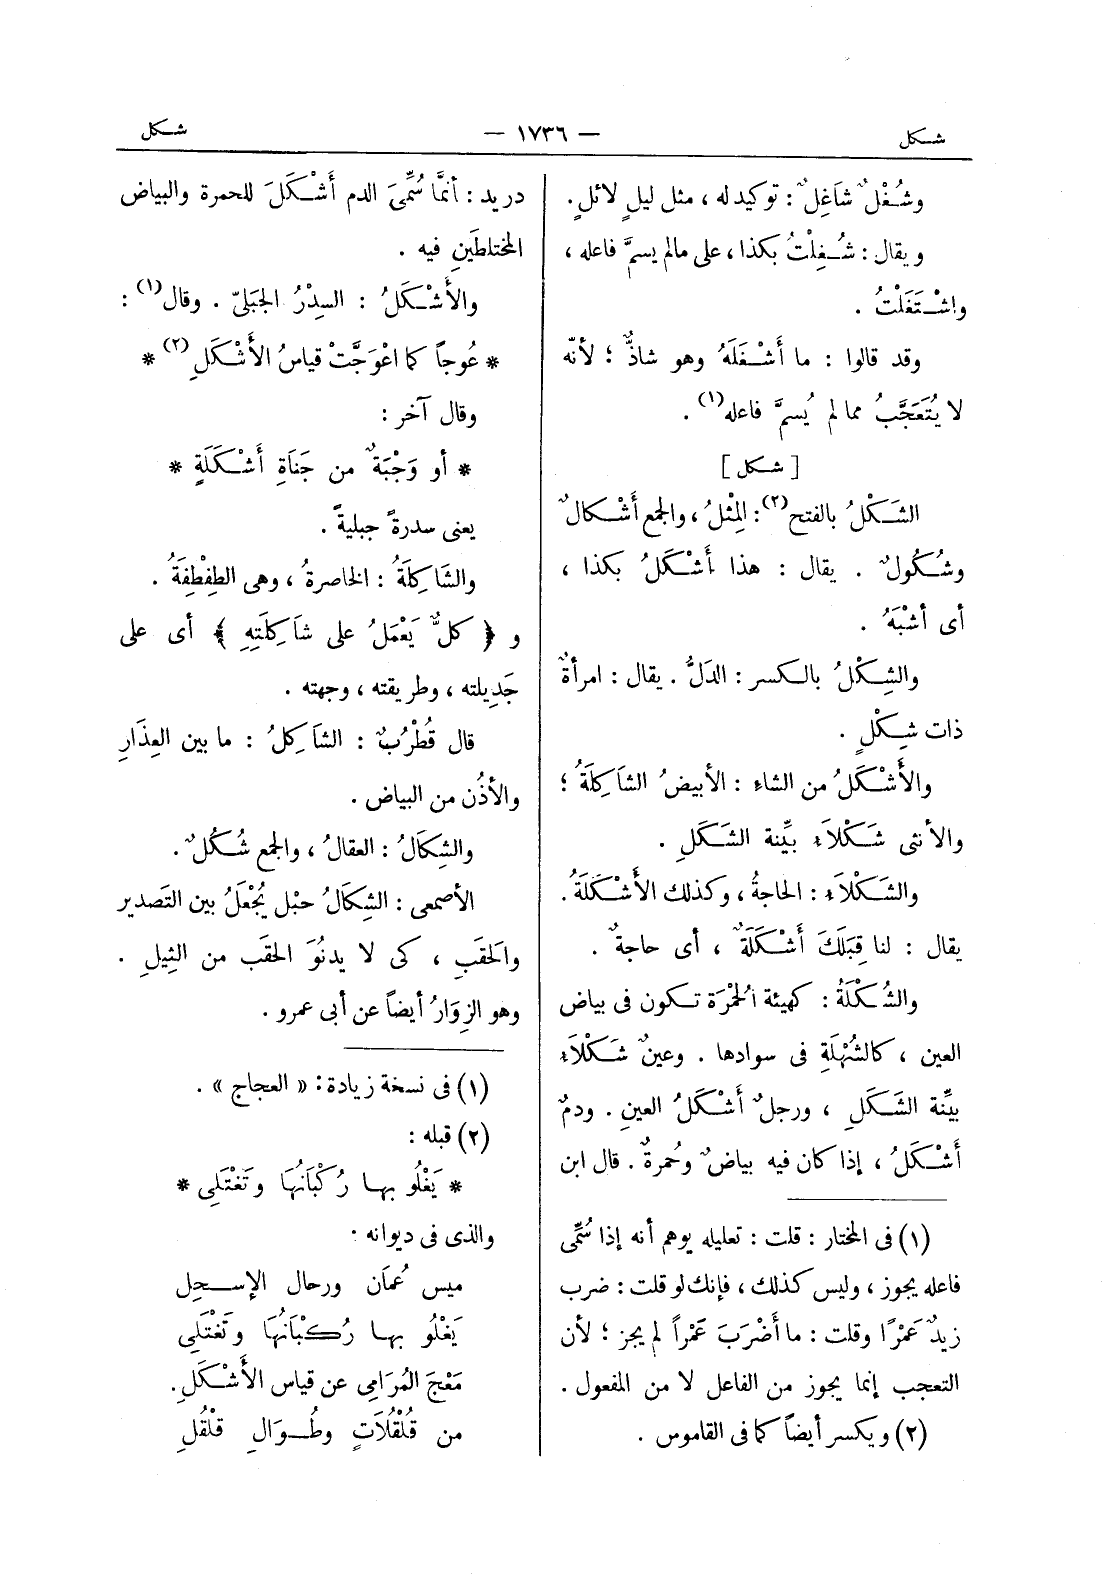 شكل
— ١٧٣٦ —
شكل
وشُغْلٌ شَاغِلٌ : توكيد له ، مثل ليلٍ لائلٍ .
ويقال : شُغِلْتُ بكذا ، على مالم يسمَّ فاعله ،
واشْتَغَلْتُ .
وقد قالوا : ما أَشْغَلَهُ وهو شاذٌّ ؛ لأنّه
لا يُتَعَجَّبُ مما لم يُسمَّ فاعله (١) .
[ شكل ]
الشَكْلُ بالفتح (٢) : المِثْلُ ، والجمع أَشْكالٌ
وشُكُولٌ . يقال : هذا أَشْكَلُ بكذا ،
أى أشْبَهُ .
والشِكْلُ بالكسر : الدَلُّ . يقال : امرأةٌ
ذات شِكْلٍ .
والأَشْكَلُ من الشاءِ : الأبيضُ الشَاكِلَةُ ؛
والأنثى شَكْلَاءِ بيِّنة الشَكَلِ .
والشَكْلَاءِ : الحاجةُ ، وكذلك الأَشْكَلَةُ .
يقال : لنا قِبَلَكَ أَشْكَلَةٌ ، أى حاجةٌ .
والشُكْلَةُ : كهيئة الُحْمْرَة تكون فى بياض
العين ، كالشُهْلَةِ فى سوادها . وعينٌ شَكْلَاءِ
بيِّنة الشَكَلِ ، ورجلٌ أَشْكَلُ العينِ . ودمٌ
أَشْكَلُ ، إذا كان فيه بياضٌ وحُمرةٌ . قال ابن
(١) فى المختار : قلت : تعليله يوهم أنه إذا سُمِّى
فاعله يجوز ، وليس كذلك ، فإنك لو قلت : ضرب
زيدٌ عَمْرًا وقلت : ما أَضْرَبَ عَمْراً لم يجز ؛ لأن
التعجب إنما يجوز من الفاعل لا من المفعول .
(٢) ويكسر أيضاً كما فى القاموس .
دريد : أنَّما سُمِّىَ الدم أَشْكَلَ للحمرة والبياض
المختلطَينِ فيه .
والأَشْكَلُ : السِدْرُ الجَبَلىّ . وقال (١) :
* عُوجاً كما اعْوَجَّتْ قياسُ الأَشْكَلِ (٢) *
وقال آخر :
* أو وَجْبَةٌ من جَنَاةِ أَشْكَلَةٍ *
يعنى سدرةً جبليةً .
والشَاكِلَةُ : الخاصرةُ ، وهى الطِفْطِفَةُ .
و ﴿ كلٌّ يَعْمَلُ على شَاكِلَتِهِ ﴾ أى على
جَدِيلته ، وطريقته ، وجهته .
قال قُطْرُبٌ : الشَاكِلُ : ما بين العِذَارِ
والأذُن من البياض .
والشِكَالُ : العقالُ ، والجمع شُكُلٌ .
الأصمعى : الشِكَالُ حبْل يُجْعَلُ بين التَصدير
والحَقَبِ ، كى لا يدنُوَ الحقَب من الثِيلِ .
وهو الزِوَارُ أيضاً عن أبى عمرو .
(١) فى نسخة زيادة : « العجاج » .
(٢) قبله :
* يَغْلُو بها رُكْبَانُهَا وتَغْتَلِى *
والذى فى ديوانه :
ميس عُمَان ورحال الإسحِل
يَغْلُو بها رُكْبَانُهَا وتَغْتَلِى
مَعْجَ المُرَامِى عن قياس الأَشْكَلِ .
من قُلْقُلَاتٍ وطُوَالِ قلْقُلِ